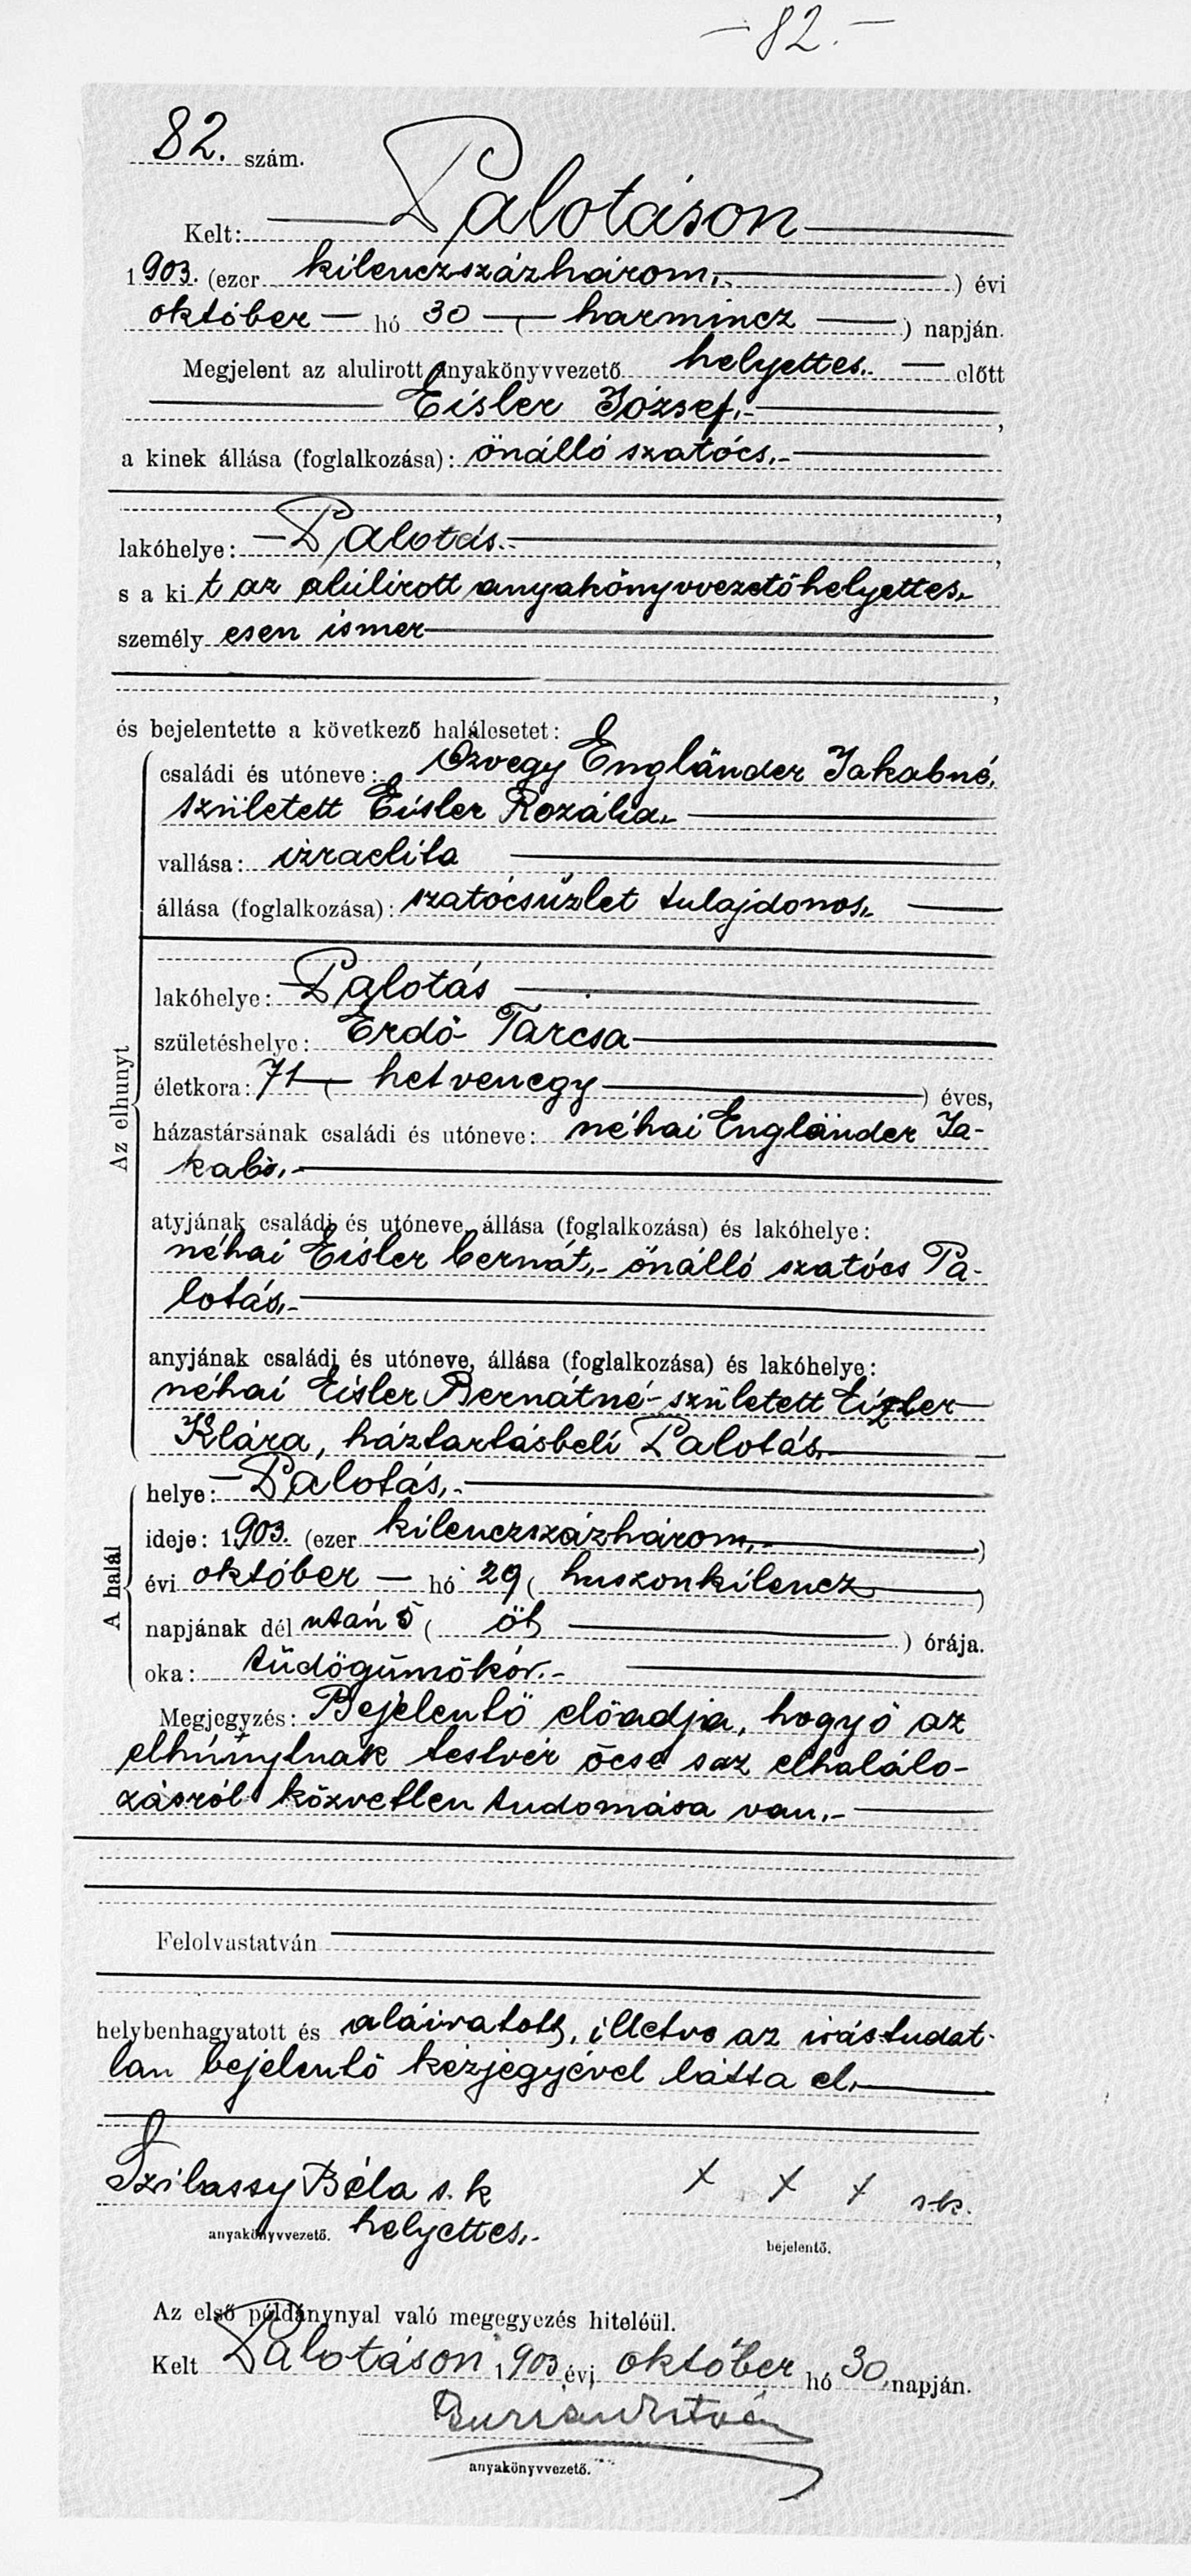 -82.-
82. szám.
Kelt: Palotáson
1903. (ezer kilenczszázhárom.) évi
október hó 30 (harmincz) napján.
Megjelent az alulirott anyakönyvvezető helyettes. előtt
Eisler József.,
a kinek állása (foglalkozása): önálló szatócs.
,
lakóhelye: Palotás.,
s a kit az alúlirott anyakönyvvezetőhelyettes
személyesen ismer
,
és bejelentette a következő halálesetet:
Az elhunyt
családi és utóneve: Özvegy Engländer Jakabné,
született Eisler Rozália
vallása: izraelita
állása (foglalkozása): szatócsüzlet tulajdonos,
lakóhelye: Palotás
születéshelye: Erdő Tarcsa
életkora: 71 (hetvenegy) éves,
házastársának családi és utóneve: néhai Engländer Ja-
kab.
atyjának családi és utóneve, állása (foglalkozása) és lakóhelye:
néhai Eisler bernát, önálló szatócs Pa-
lotás.
anyjának családi és utóneve, állása (foglalkozása) és lakóhelye:
néhai Eisler Bernátné született Eizler
Klára, háztartásbeli Palotás,
A halál
helye: Palotás,
ideje: 1903. (ezer kilenczszázhárom.)
évi október hó 29 (huszonkilencz)
napjának dél után 5 (öt) órája.
oka: tüdőgümőkór.
Megjegyzés: Bejelentő előadja, hogy ő az
elhúnytnak testvér öcse s az elhalálo-
zásról közvetlen tudomása van.
Felolvastatván
helybenhagyatott és aláiratott, illetve az irástudat-
lan bejelentő kézjegyével látta el.
Szilassy Béla s. k
x x x s.k.
anyakönyvvezető. helyettes.
bejelentő.
Az első példánynyal való megegyezés hiteléül.
Kelt Palotáson 1903 évi október hó 30. napján.
István
anyakönyvvezető.